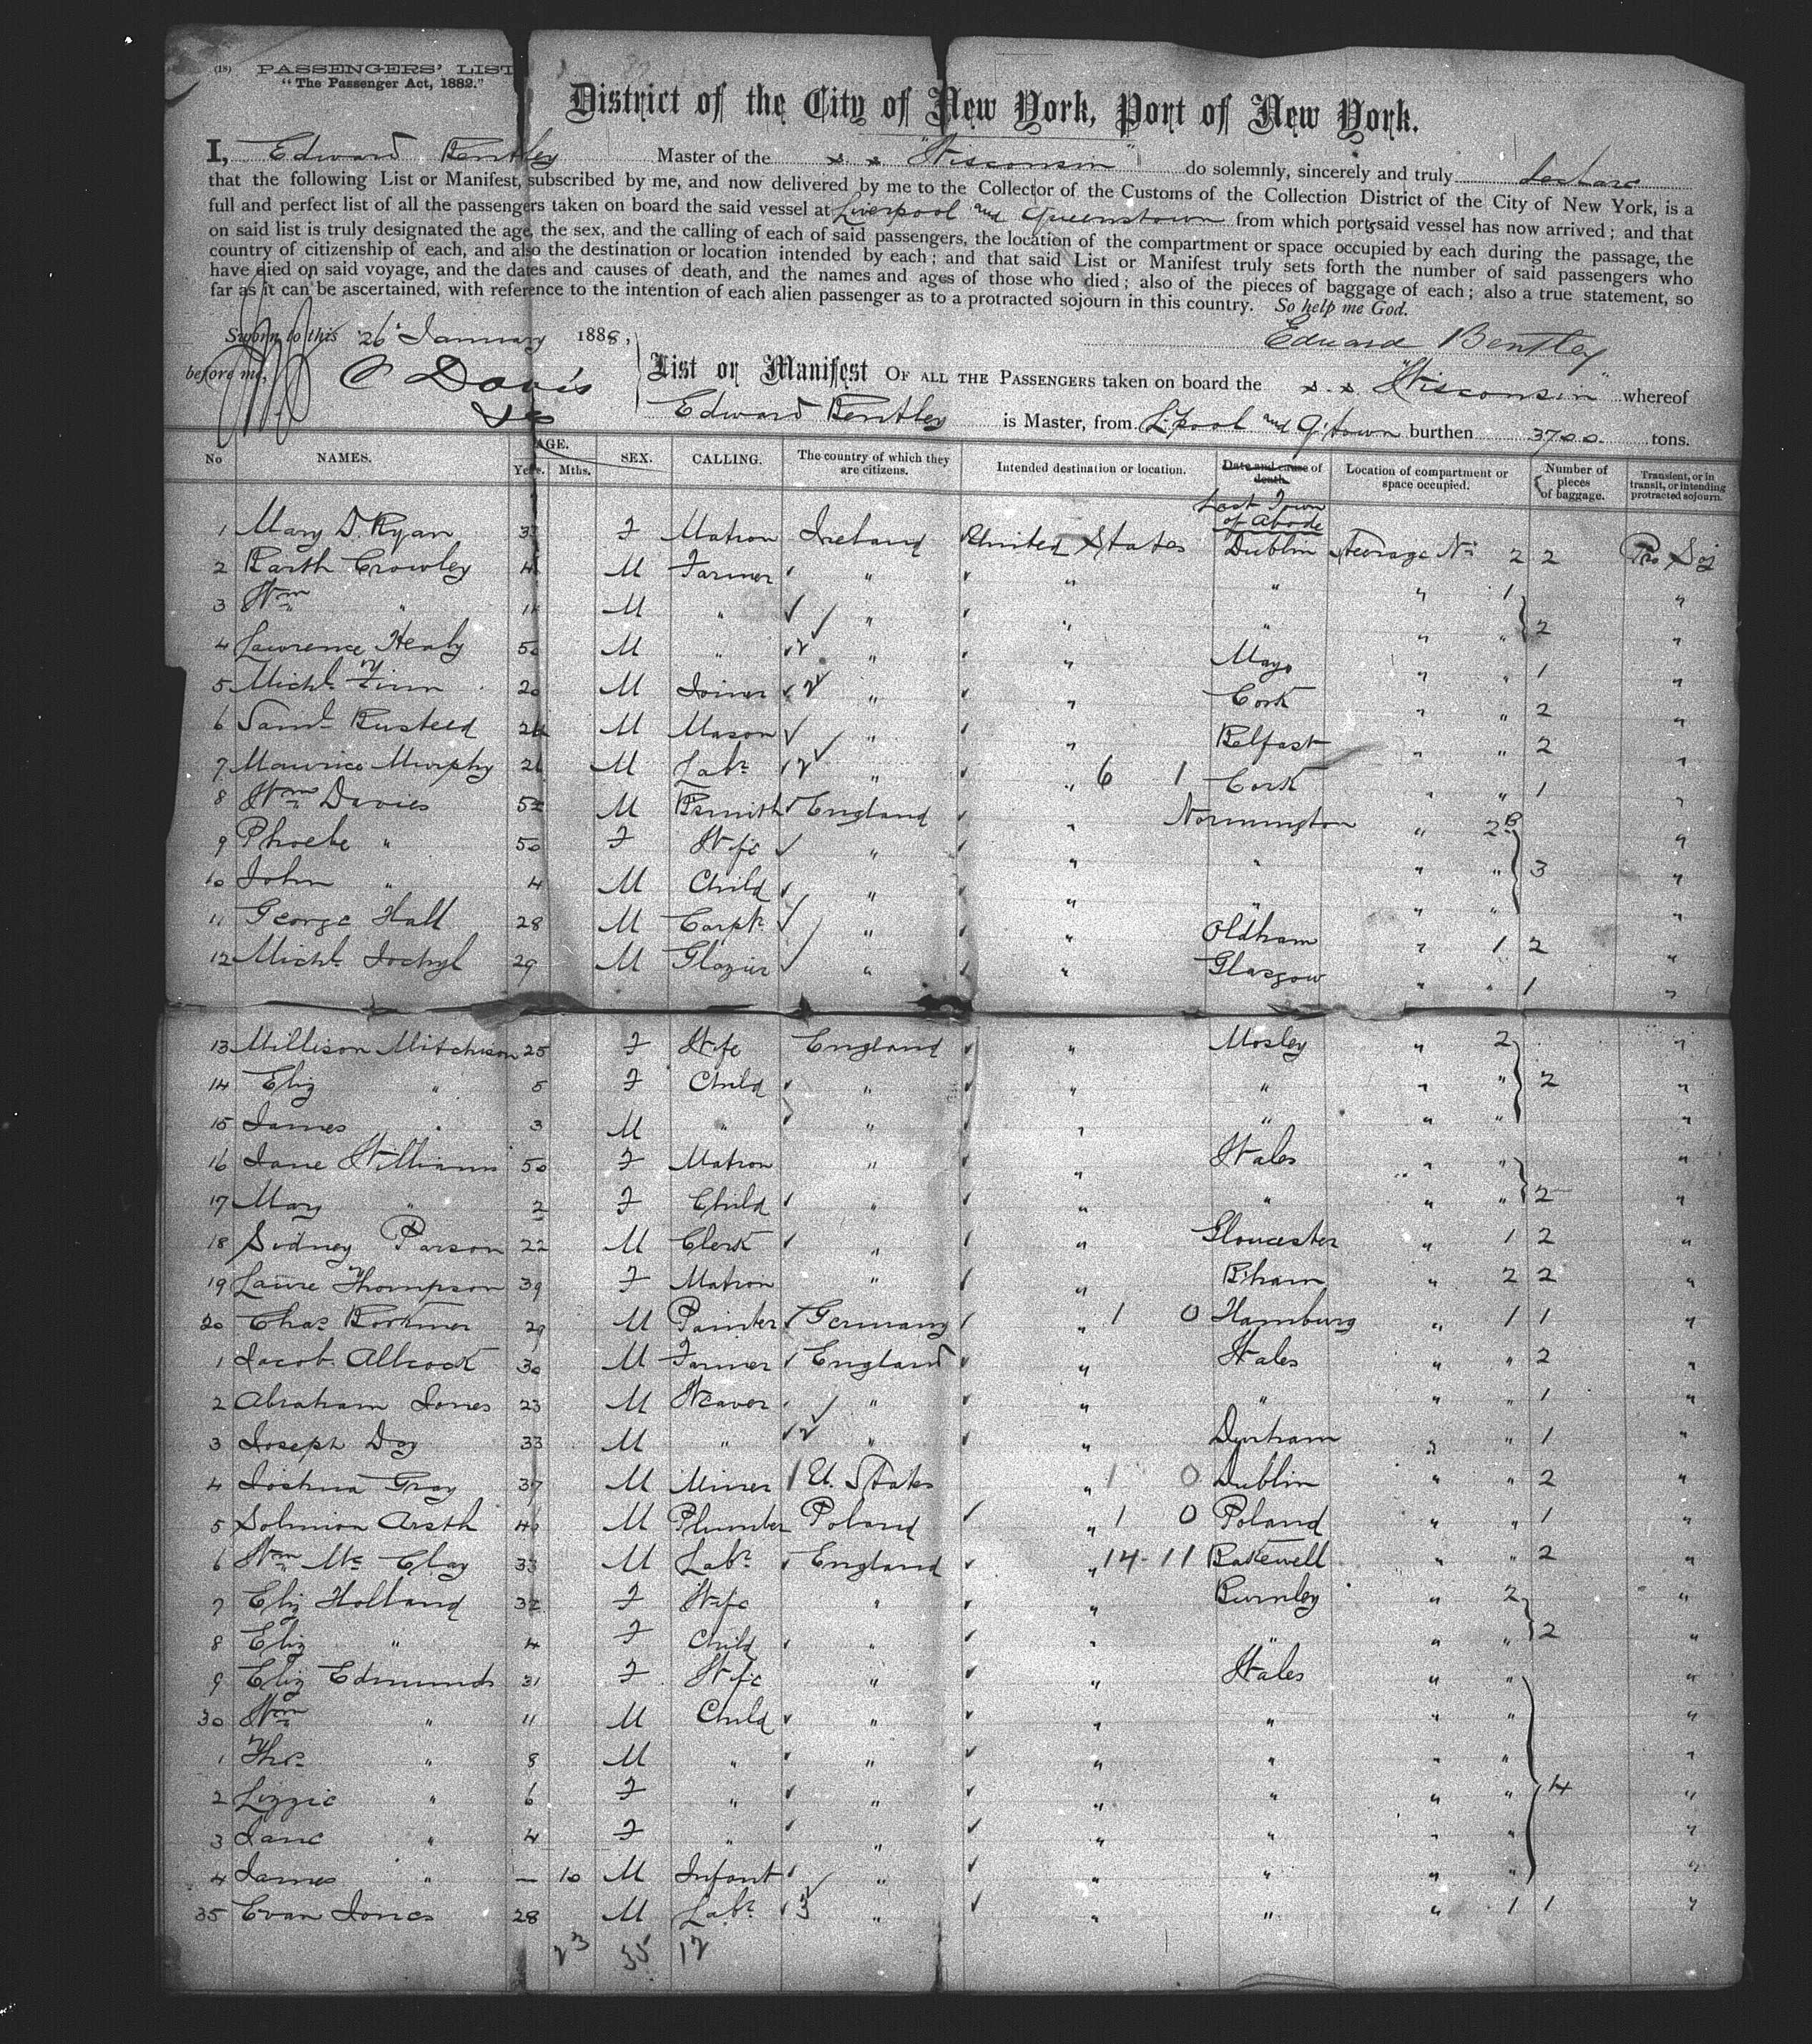 (18) PASSENGERS' LIST
"The Passenger Act, 1882."
District of the City of New York, Port of New York.
I, Edward Bentley Master of the s s "Wisconsin" do solemnly, sincerely and truly declare
that the following List or Manifest, subscribed by me, and now delivered by me to the Collector of the Customs of the Collection District of the City of New York, is a
full and perfect list of all the passengers taken on board the said vessel at Liverpool and Queenstown from which port said vessel has now arrived; and that
on said list is truly designated the age, the sex, and the calling of each of said passengers, the location of the compartment or space occupied by each during the passage, the
country of citizenship of each, and also the destination or location intended by each; and that said List or Manifest truly sets forth the number of said passengers who
have died on said voyage, and the dates and causes of death, and the names and ages of those who died; also of the pieces of baggage of each; also a true statement, so
far as it can be ascertained, with reference to the intention of each alien passenger as to a protracted sojourn in this country. So help me God.
Sworn to this 26 January 1888, Edward Bentley
before me, C Davis
List or Manifest OF ALL THE PASSENGERS taken on board the s.s. "Wisconsin" whereof
Edward Bentley is Master, from L'pool and Q'town burthen 3700 tons.
No NAMES. AGE. Yrs. Mths. SEX. CALLING. The country of which they are citizens. Intended destination or location. Date and cause of death. Location of compartment or space occupied. Number of pieces of baggage. Transient, or in transit, or intending protracted sojourn.
Last Town of Abode
1 Mary D. Ryan F Matron Ireland United States Dublin Steerage No 2 2 Pro Soj
2 Barth Crowley M Farmer " " " " 1 "
3 Wm " M " " " " " " 2 "
4 Lawrence Healy M " " " Mayo " " 1 "
5 Michl Finn 20 M Joiner " " Cork " " 2 "
6 Saml Busteed M Mason " " Belfast " " 2 "
7 Maurice Murphy M Labr " " 6 1 Cork " " 1 "
8 Wm Davies M Bsmith England " Normington " 2 "
9 Phoebe " 50 F Wife " " " " " 3 "
10 John " 4 M Child " " " " " "
11 George Hall 28 M Carptr " " Oldham " 1 2 "
12 Michl 29 M Glazier " " Glasgow " " 1 "
13 Millison Mitchison 25 F Wife England " Mosley " 2 "
14 Eliz " 5 F Child " " " " " 2 "
15 James " 3 M " " " " " " "
16 Jane Williams 50 F Matron " " Wales " " "
17 Mary " 2 F Child " " " " " 2 "
18 Sidney Parson 22 M Clerk " " Gloucester " 1 2 "
19 Laure Thompson 39 F Matron " " B'ham " 2 2 "
20 Chas 29 M Painter Germany " 1 0 Hamburg " 1 1 "
1 Jacob Allcock 30 M Farmer England " Wales " " 2 "
2 Abraham Jones 23 M Weaver " " " " " 1 "
3 Joseph Day 33 M " " " Durham " " 1 "
4 Joshua Gray 37 M Miner U. States " 1 0 Dublin " " 2 "
5 Solomon Arsth M Plumber Poland " 1 0 Poland " " 1 "
6 Wm Mc Clay 33 M Labr England " 14-11 Bakewell " " 2 "
7 Eliz Holland 32 F Wife " " Burnley " 2 "
8 Eliz " 4 F Child " " " " " 2 "
9 Eliz Edmunds 31 F Wife " " Wales " " "
30 Wm " 11 M Child " " " " " "
1 Thos " 8 M " " " " " " "
2 Lizzie " 6 F " " " " " " 4 "
3 Jane " 4 F " " " " " " "
4 James " — 10 M Infant " " " " " "
35 Evan Jones 28 M Labr " " " " 1 1 "
23 35 12